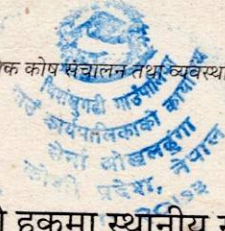 क कोष संचालन तथा व्यवस्था
चिशंखुगढी गाउँपालिका
गाउँ कार्यपालिकाको कार्यालय
ओखलढुंगा
कोशी प्रदेश, नेपाल
हकमा स्थानीय